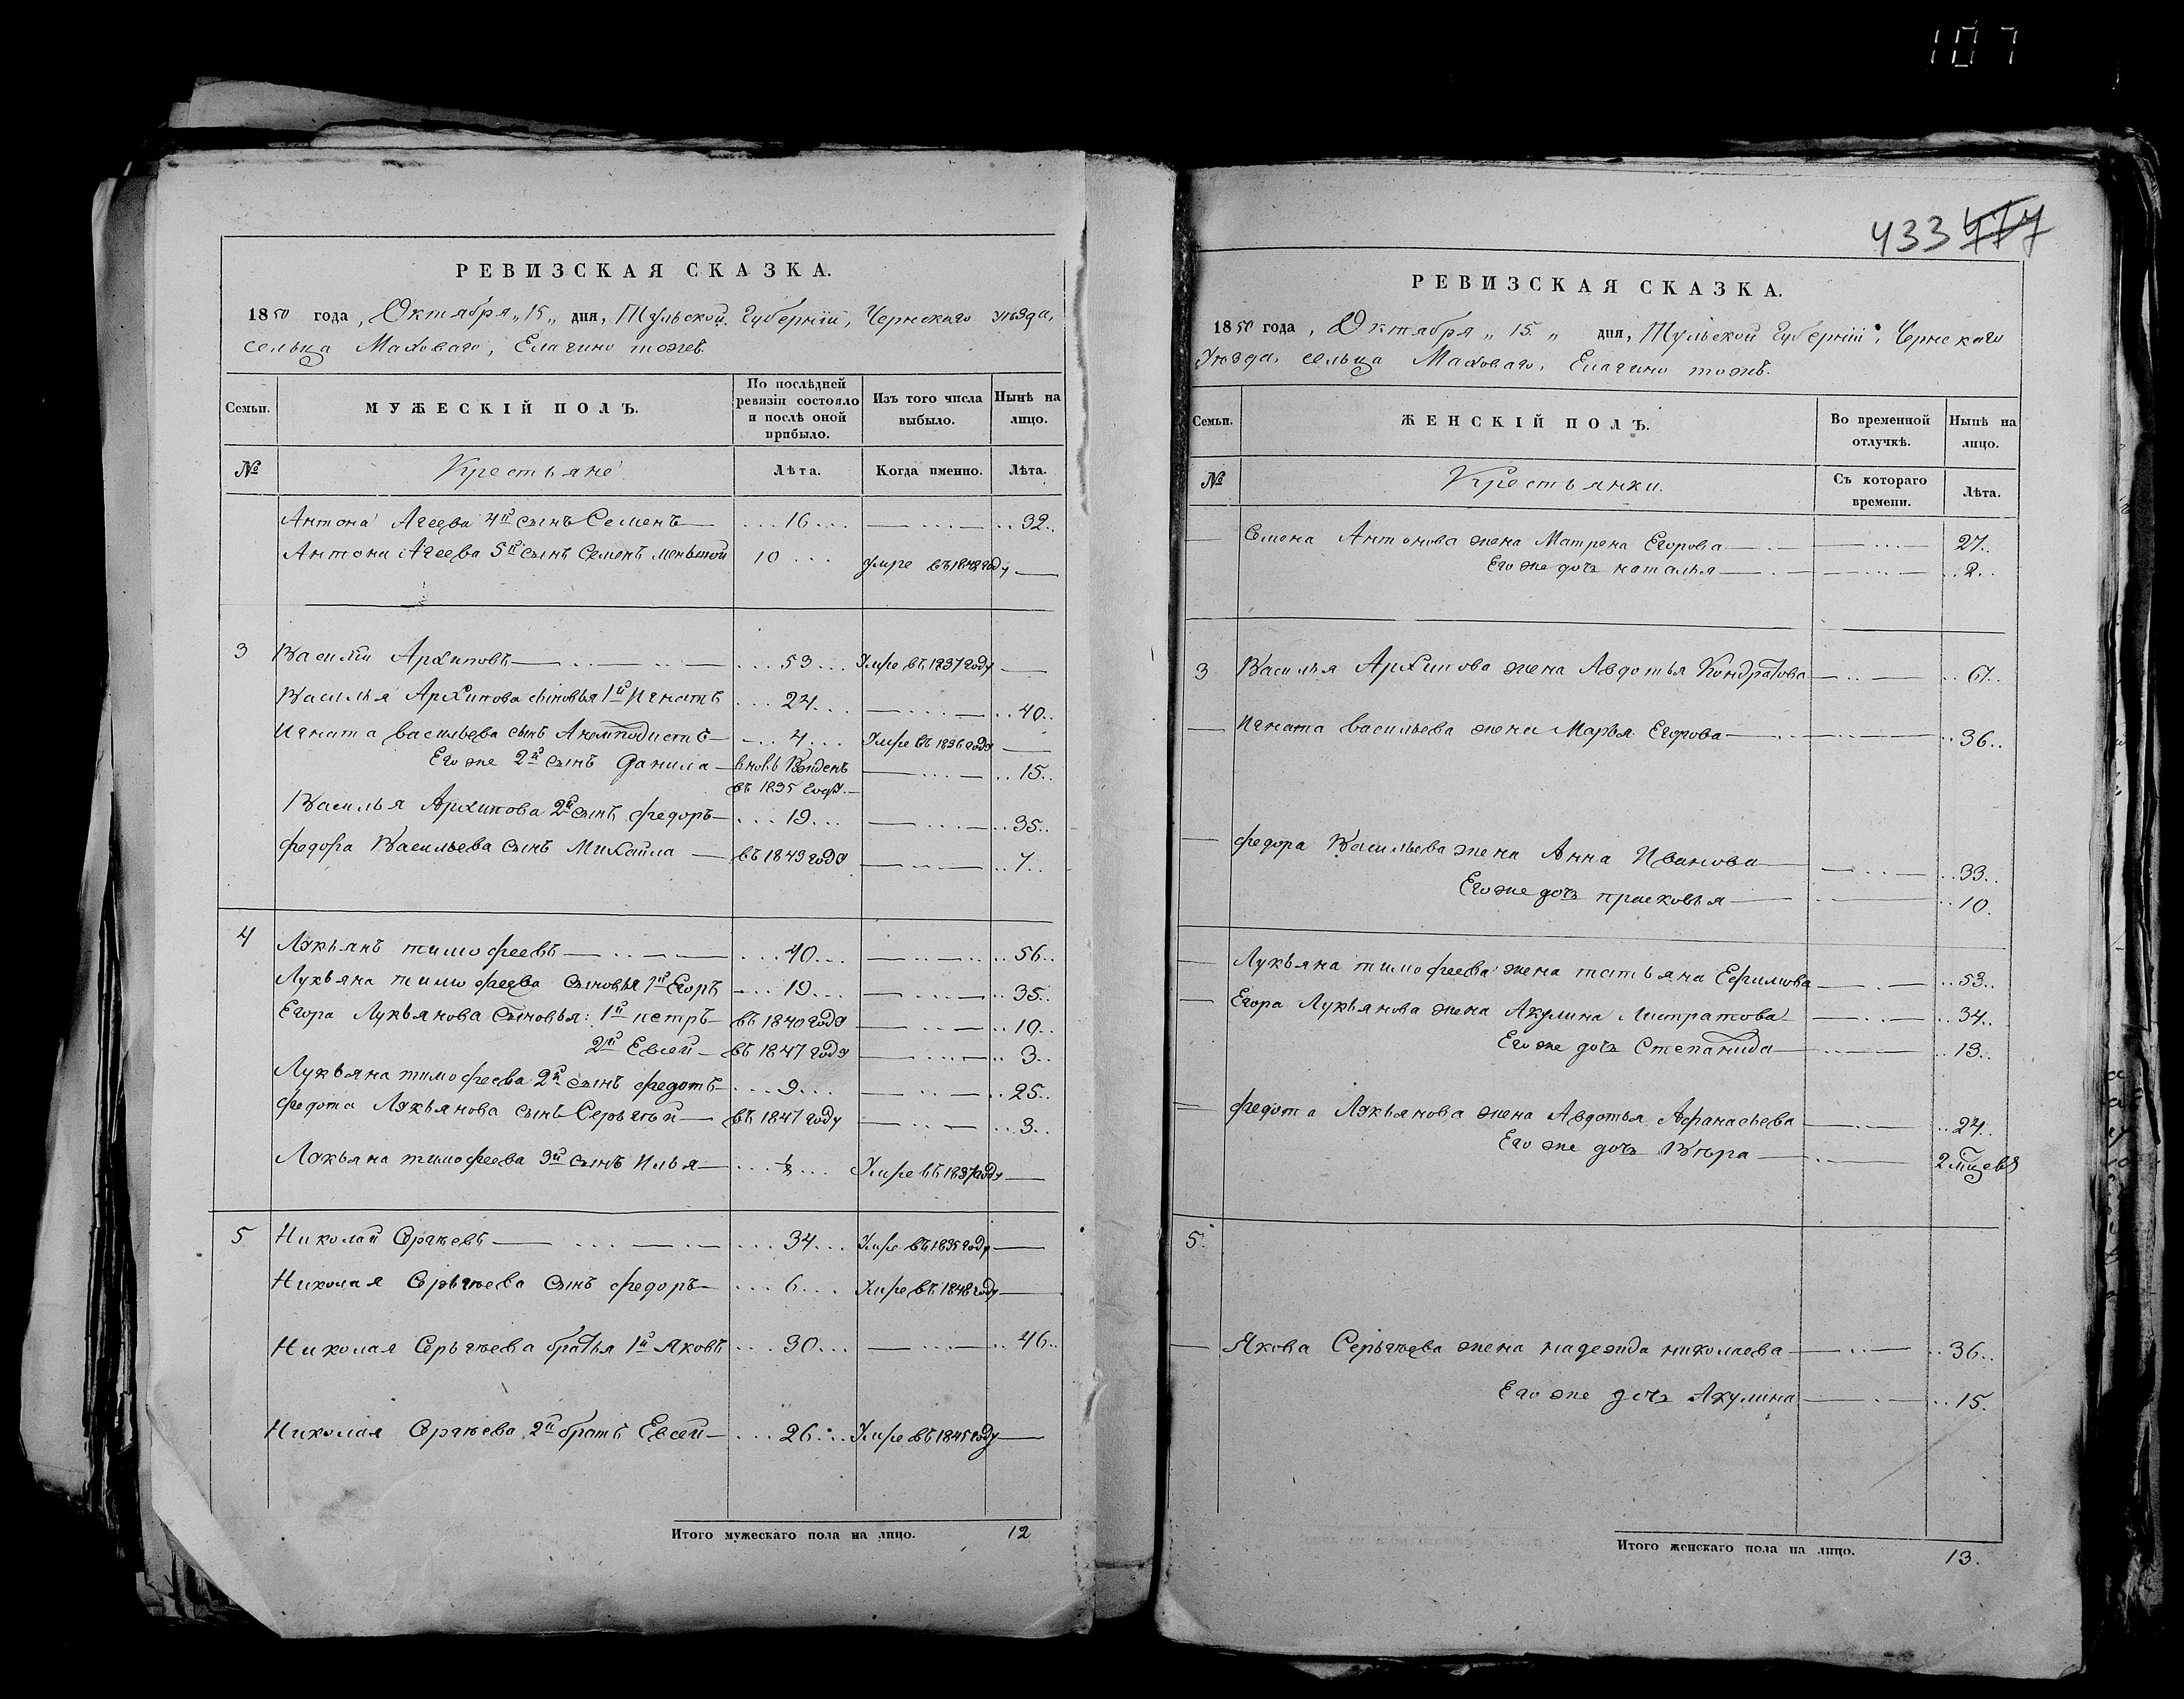 107
433 477
РЕВИЗСКАЯ СКАЗКА.
1850 года, Октября „15„ дня, Тульской Губерніи, Чернскаго уѣзда,
сельца Маховаго, Елагино тожъ.
Семьи.
МУЖЕСКІЙ ПОЛЪ.
По послѣдней ревизіи состояло и послѣ оной прибыло.
Изъ того числа выбыло.
Нынѣ на лицо.
№
Крестьяне
Лѣта.
Когда именно.
Лѣта.
Антона Агеева 4й сынъ Семенъ 16 32
Антона Агеева 5й сынъ Семенъ меньшой 10 умре въ 1848 году
3 Василій Архиповъ 53 Умре въ 1837 году
Василья Архипова сыновья 1й Игнатъ 24 40
Игната васильева сынъ Анемподистъ 4 Умре въ 1836 году
Его же 2й сынъ Данила вновь рожденъ 15
въ 1835 году
Василья Архипова 2й сынъ федоръ 19 35
федора Васильева сынъ Михайла въ 1843 году 7
4 Лукьянъ тимофеевъ 40 56
Лукьяна тимофеева сыновья 1й Егоръ 19 35
Егора Лукьянова сыновья: 1й петръ въ 1840 году 10
2й Евсей въ 1847 году 3
Лукьяна тимофеева 2й сынъ федотъ 9 25
федота Лукьянова сынъ Серьгѣй въ 1847 году 3
Лукьяна тимофеева 3й сынъ Илья ½ Умре въ 1837 году
5 Николай Сергѣевъ 34 Умре въ 1835 году
Николая Серьгѣева сынъ федоръ 6 Умре въ 1848 году
Николая Серьгѣева братья 1й Яковъ 30 46
Николая Сергѣева 2й братъ Евсей 26 Умре въ 1845 году
Итого мужескаго пола на лицо. 12
РЕВИЗСКАЯ СКАЗКА.
1850 года, Октября „15„ дня, Тульской Губерніи, Чернскаго
Уѣзда, сельца Маховаго, Елагино тожъ.
Семьи.
ЖЕНСКІЙ ПОЛЪ.
Во временной отлучкѣ.
Нынѣ на лицо.
№
Крестьянки.
Съ котораго времени.
Лѣта.
Семена Антонова жена Матрена Егорова 27
Его же дочь наталья 2
3 Василья Архипова жена Авдотья Кондратова 67
Игната васильева жена Марья Егорова 36
федора Васильева жена Анна Иванова 33
Его же дочь прасковья 10
Лукьяна тимофеева жена татьяна Ефимова 53
Егора Лукьянова жена Акулина Листратова 34
Его же дочь Степанида 13
федота Лукьянова жена Авдотья Афанасьева 24
Его же дочь Вѣра 2 мѣсецевъ
5.
Якова Серьгѣева жена надежда николаева 36
Его же дочь Акулина 15
Итого женскаго пола на лицо. 13.